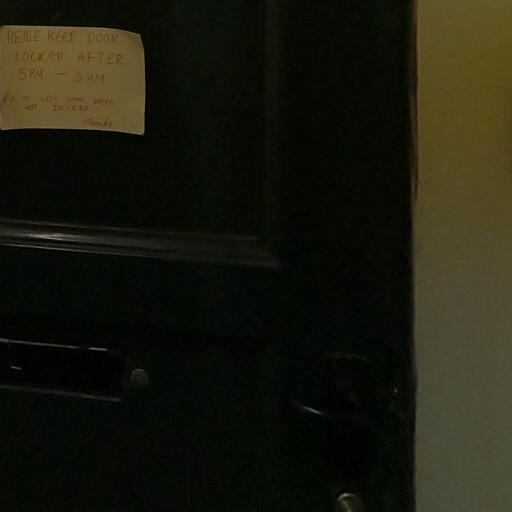 PLEASE KEEP DOOR
LOCKED AFTER
5PM — 8AM
IF IT IS LEFT OPEN WE'RE
NOT INSURED
Thanks